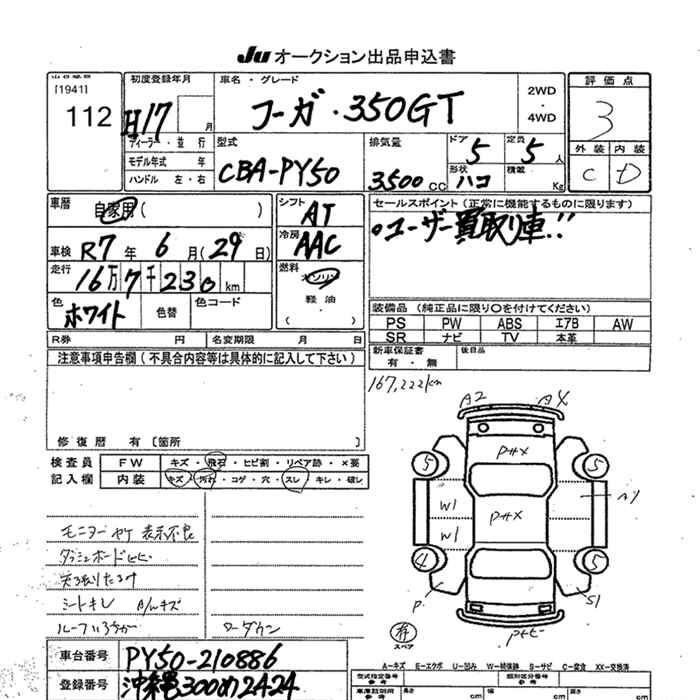 Ju オークション出品申込書
[1941]
112
初度登録年月
H17 月
車名・グレード
フーガ・350GT
2WD
・
4WD
評価点
3
外装 内装
C D
ディーラー・並行
モデル年式 年
ハンドル 左・右
型式
CBA-PY50
排気量
3500 cc
ドア
5
定員
5人
形状
ハコ
積載
Kg
車暦
自家用( )
シフト
AT
冷房
AAC
セールスポイント(正常に機能するものに限ります)
。ユーザー買取り車!!
車検 R7年 6月(29日)
走行 16万7千230km
燃料
ガソリン
軽油
( )
色
ホワイト
色替
色コード
装備品(純正品に限り〇を付けてください)
PS PW ABS エアB AW
SR ナビ TV 本革
R券 円 名変期限 月 日
新車保証書
有・無
後日品
注意事項申告欄(不具合内容等は具体的に記入して下さい)
修復暦 有〔箇所 〕
167,222km
検査員
記入欄
FW キズ・飛石・ヒビ割・リペア跡・×要
内装 キズ・汚れ・コゲ・穴・スレ・キレ・破レ
A2 AX
5 5
W1
W1
4 5
P S1
モニターヤケ 表示不良
ダッシュボードヒビ
天張りたるみ
シートキレ
ルーフ
ローダウン
有
スペア
車台番号 PY50-210886
登録番号 沖縄300め2424
A=キズ E=エクボ U=凹み W=補修跡 S=サビ C=腐食 XX=交換済
型式指定番号
参考
類別区分番号
参考
高さ
cm
長さ
cm
幅
cm